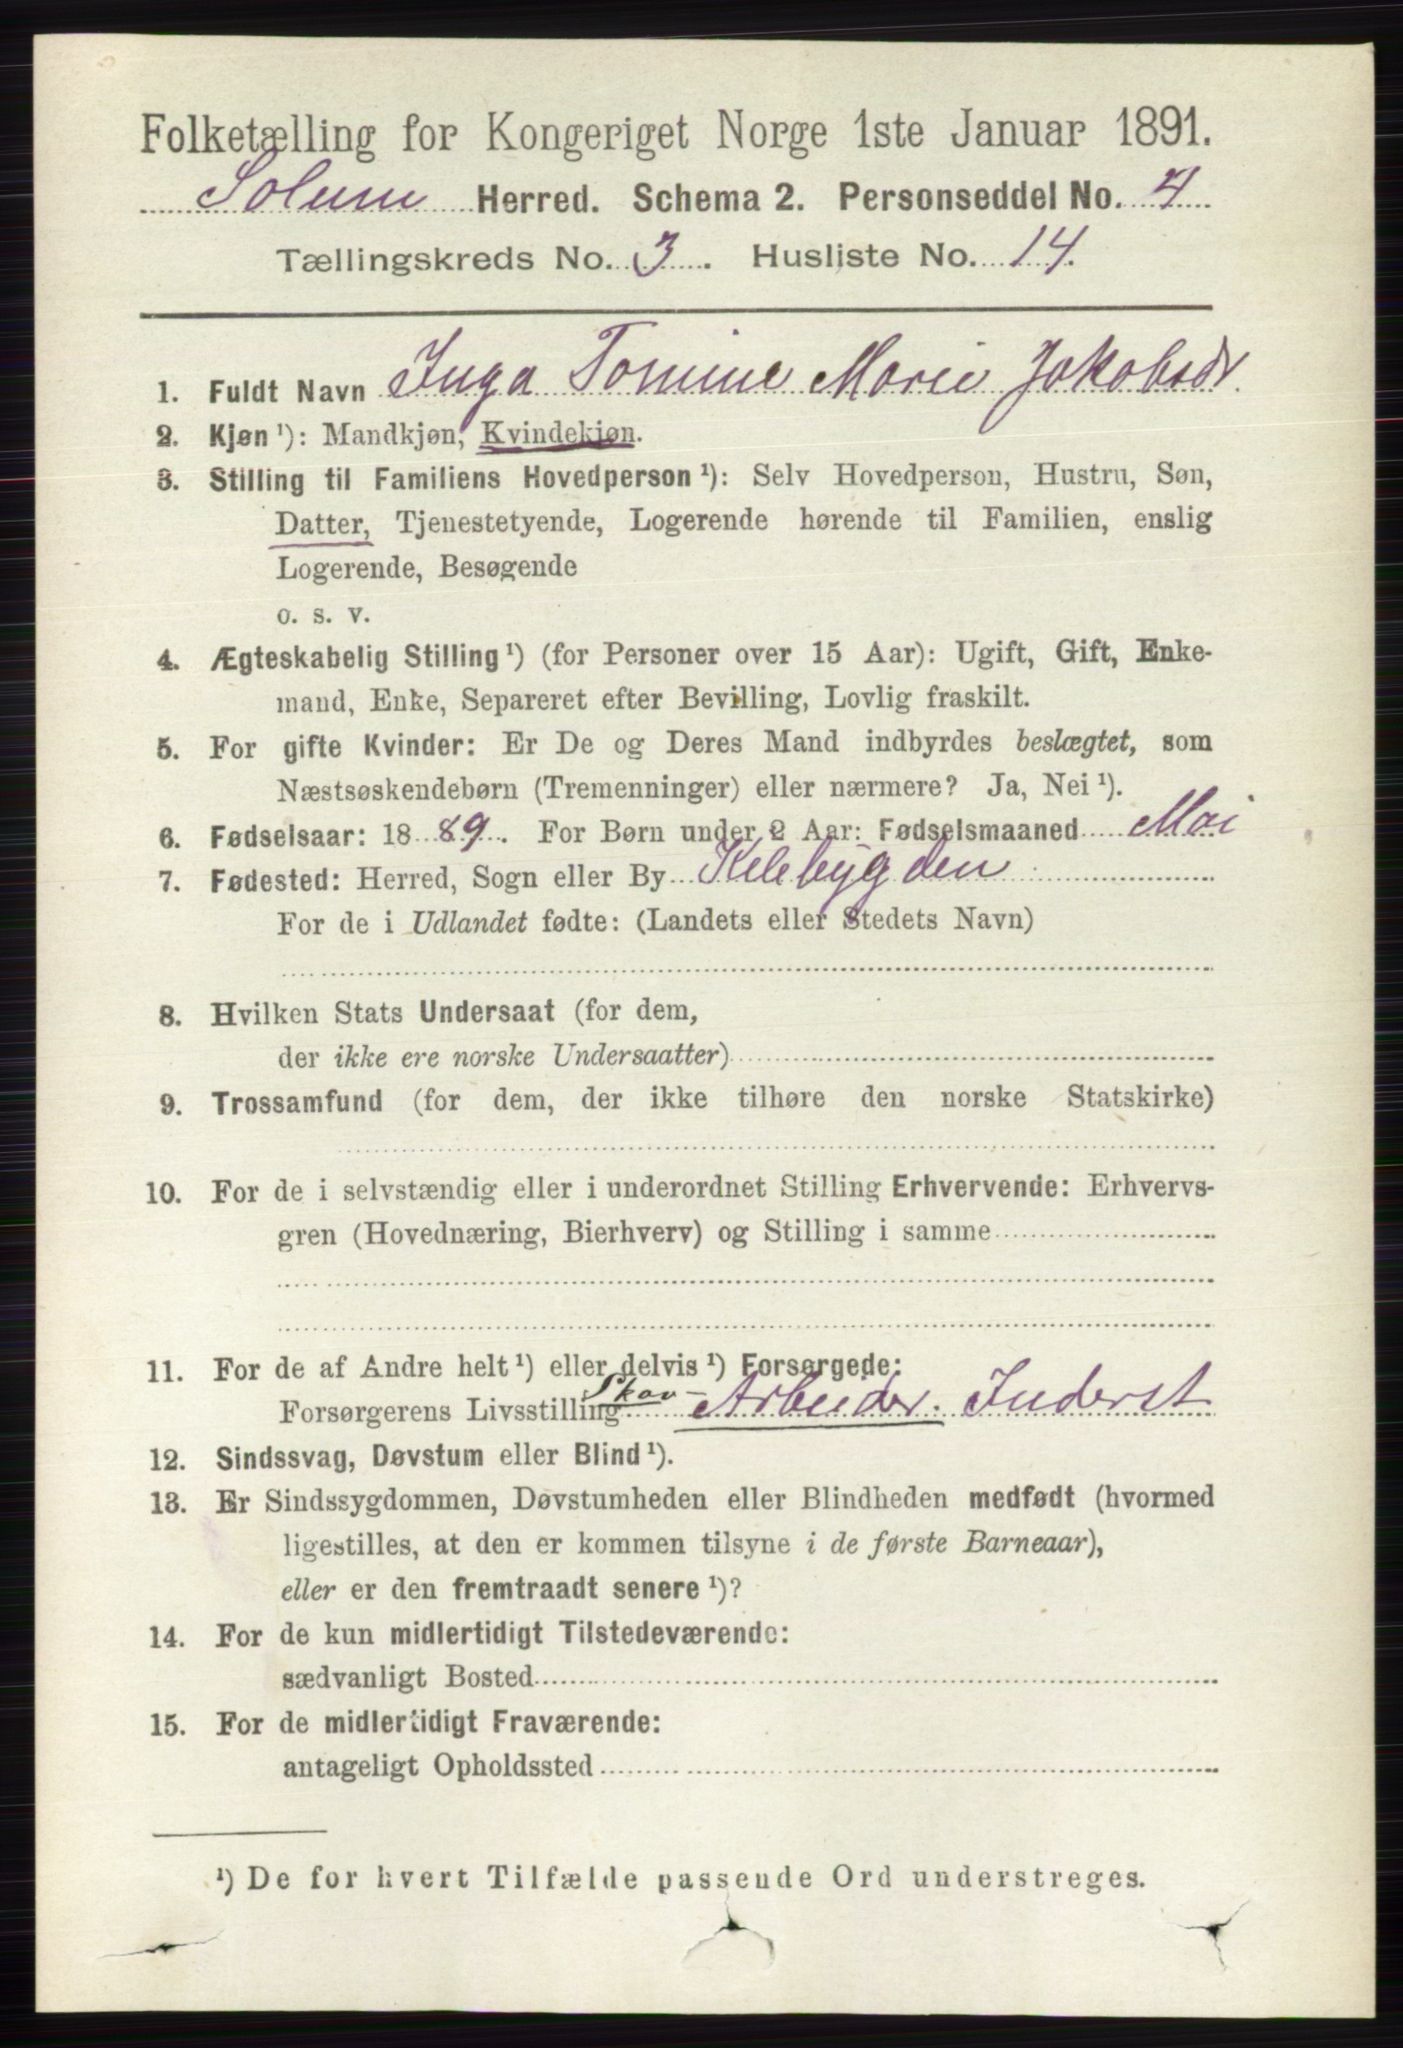 Folketælling for Kongeriget Norge 1ste Januar 1891.
Solum Herred. Schema 2. Personseddel No. 4
Tællingskreds No. 3. Husliste No. 14.
1. Fuldt Navn Inga Tomine Marie Jakobsdr.
2. Kjøn ¹): Mandkjøn, Kvindekjøn.
3. Stilling til Familiens Hovedperson ¹): Selv Hovedperson, Hustru, Søn,
Datter, Tjenestetyende, Logerende hørende til Familien, enslig
Logerende, Besøgende
o. s. v.
4. Ægteskabelig Stilling ¹) (for Personer over 15 Aar): Ugift, Gift, Enke-
mand, Enke, Separeret efter Bevilling, Lovlig fraskilt.
5. For gifte Kvinder: Er De og Deres Mand indbyrdes beslægtet, som
Næstsøskendebørn (Tremenninger) eller nærmere? Ja, Nei ¹).
6. Fødselsaar: 1889. For Børn under 2 Aar: Fødselsmaaned Mai
7. Fødested: Herred, Sogn eller By Kilebygden
For de i Udlandet fødte: (Landets eller Stedets Navn)
8. Hvilken Stats Undersaat (for dem,
der ikke ere norske Undersaatter)
9. Trossamfund (for dem, der ikke tilhøre den norske Statskirke)
10. For de i selvstændig eller i underordnet Stilling Erhvervende: Erhvervs-
gren (Hovednæring, Bierhverv) og Stilling i samme
11. For de af Andre helt ¹) eller delvis ¹) Forsørgede:
Forsørgerens Livsstilling Skov-Arbeider. Inderst
12. Sindssvag, Døvstum eller Blind ¹).
13. Er Sindssygdommen, Døvstumheden eller Blindheden medfødt (hvormed
ligestilles, at den er kommen tilsyne i de første Barneaar),
eller er den fremtraadt senere ¹)?
14. For de kun midlertidigt Tilstedeværende:
sædvanligt Bosted
15. For de midlertidigt Fraværende:
antageligt Opholdssted
¹) De for hvert Tilfælde passende Ord understreges.